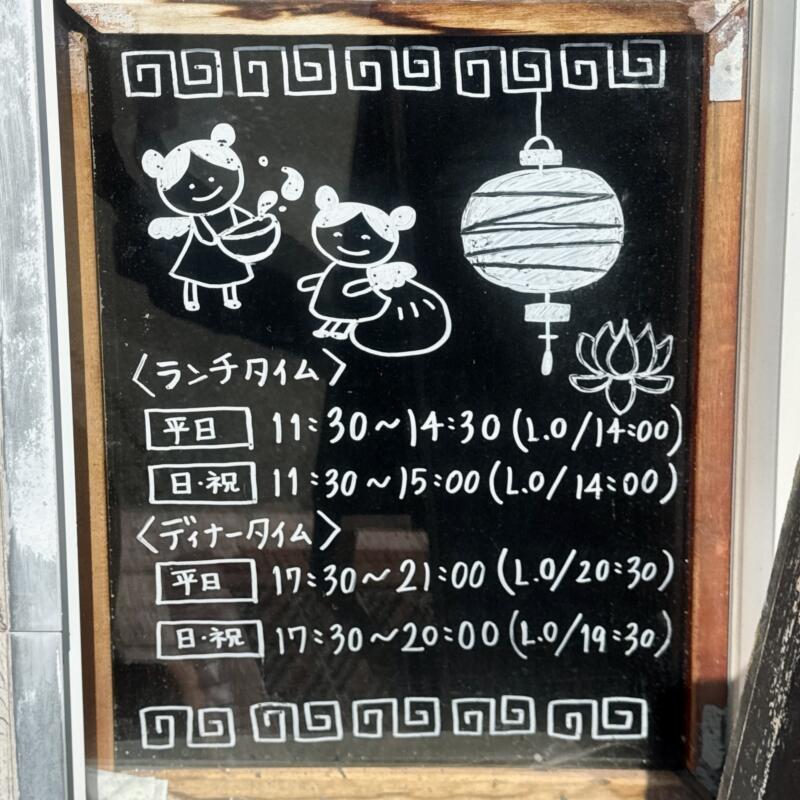 〈ランチタイム〉
平日 11:30～14:30(L.O/14:00)
日・祝 11:30～15:00(L.O/14:00)
〈ディナータイム〉
平日 17:30～21:00(L.O/20:30)
日・祝 17:30～20:00(L.O/19:30)